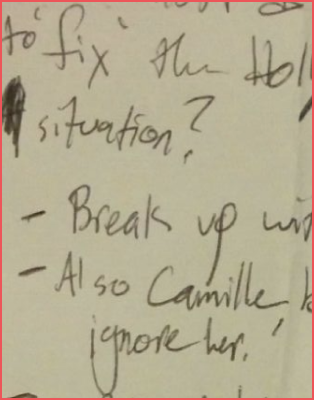 to 'fix' the
situation?
- Break up
- Also Camille
ignore her.'